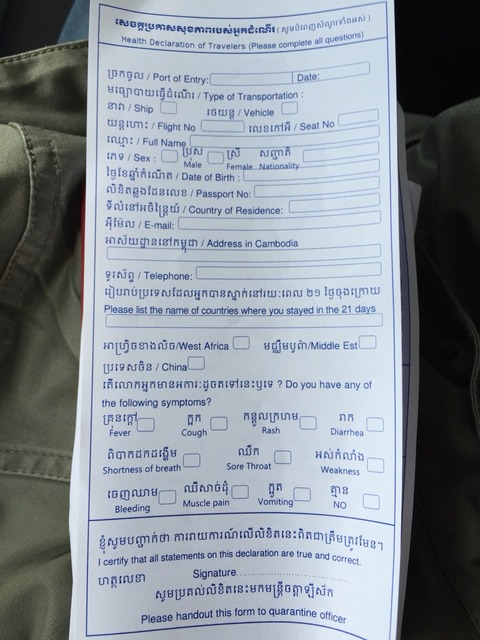 សេចក្តីប្រកាសសុខភាពរបស់អ្នកដំណើរ (សូមបំពេញសំណួរទាំងអស់)
Health Declaration of Travelers (Please complete all questions)
ច្រកចូល / Port of Entry: Date:
មធ្យោបាយធ្វើដំណើរ / Type of Transportation :
នាវា / Ship រថយន្ត / Vehicle
យន្តហោះ / Flight No លេខកៅអី / Seat No
ឈ្មោះ / Full Name
ភេទ / Sex : ប្រុស ស្រី សញ្ជាតិ
Male Female Nationality
ថ្ងៃខែឆ្នាំកំណើត / Date of Birth :
លិខិតឆ្លងដែនលេខ / Passport No:
ទីលំនៅអចិន្ត្រៃយ៍ / Country of Residence:
អ៊ីម៉ែល / E-mail:
អាស័យដ្ឋាននៅកម្ពុជា / Address in Cambodia
ទូរស័ព្ទ / Telephone:
រៀបរាប់ប្រទេសដែលអ្នកបានស្នាក់នៅរយៈពេល ២១ ថ្ងៃចុងក្រោយ
Please list the name of countries where you stayed in the 21 days
អាហ្វ្រិចខាងលិច/West Africa មជ្ឈឹមបូព៌ា/Middle Est
ប្រទេសចិន / China
តើលោកអ្នកមានអាការៈដូចតទៅនេះឬទេ ? Do you have any of
the following symptoms?
គ្រុនក្តៅ ក្អក កន្ទួលក្រហម រាក
Fever Cough Rash Diarrhea
ពិបាកដកដង្ហើម ឈឺក អស់កំលាំង
Shortness of breath Sore Throat Weakness
ចេញឈាម ឈឺសាច់ដុំ ក្អួត គ្មាន
Bleeding Muscle pain Vomiting NO
ខ្ញុំសូមបញ្ជាក់ថា ការរាយការណ៍លើលិខិតនេះពិតជាត្រឹមត្រូវមែន។
I certify that all statements on this declaration are true and correct.
ហត្ថលេខា Signature
សូមប្រគល់លិខិតនេះមកមន្ត្រីចត្តាឡីស័ក
Please handout this form to quarantine officer